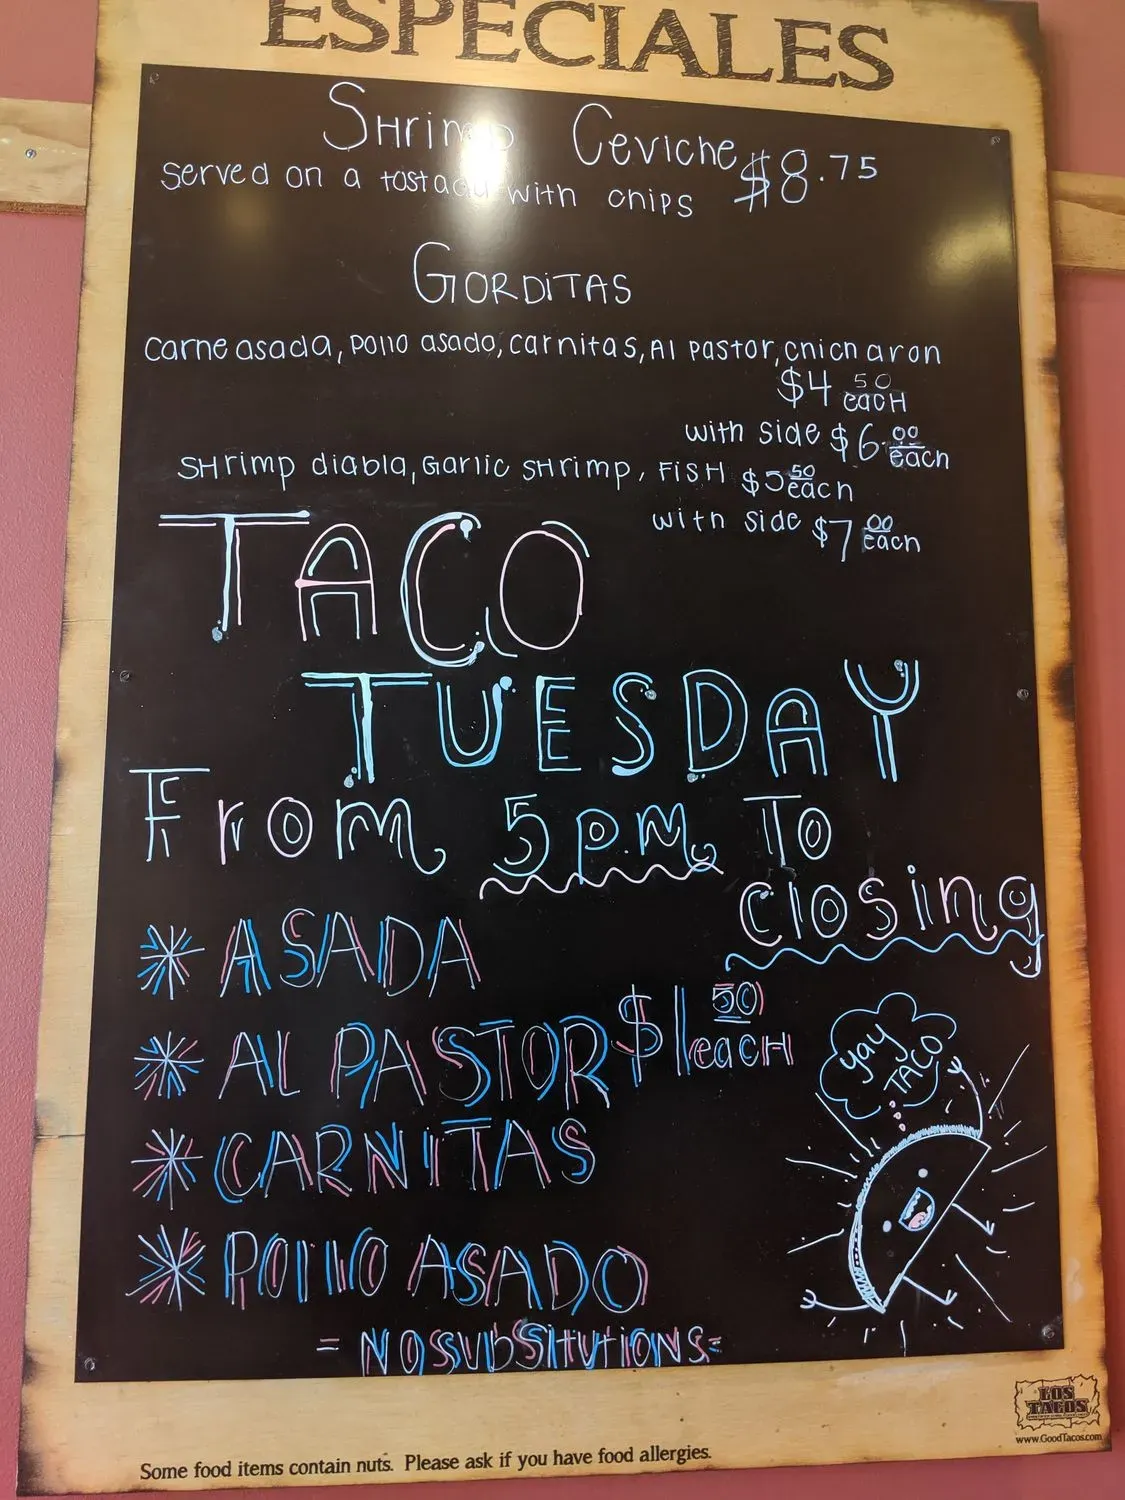 ESPECIALES
Shrimp Ceviche $8.75
served on a tostada with chips
GORDITAS
carne asada, pollo asado, carnitas, Al pastor, chicharon
$4 50 each
with side $6.00 each
SHrimp diabla, Garlic SHrimp, FISH $5 50 each
with side $7 00 each
TACO
TUESDAY
From 5pm To
closing
* ASADA
* AL PASTOR $1 50 each
* CARNITAS
* POllO ASADO
= NO SUbSitutiONS =
yay
TACO
LOS
TACOS
www.GoodTacos.com
Some food items contain nuts. Please ask if you have food allergies.